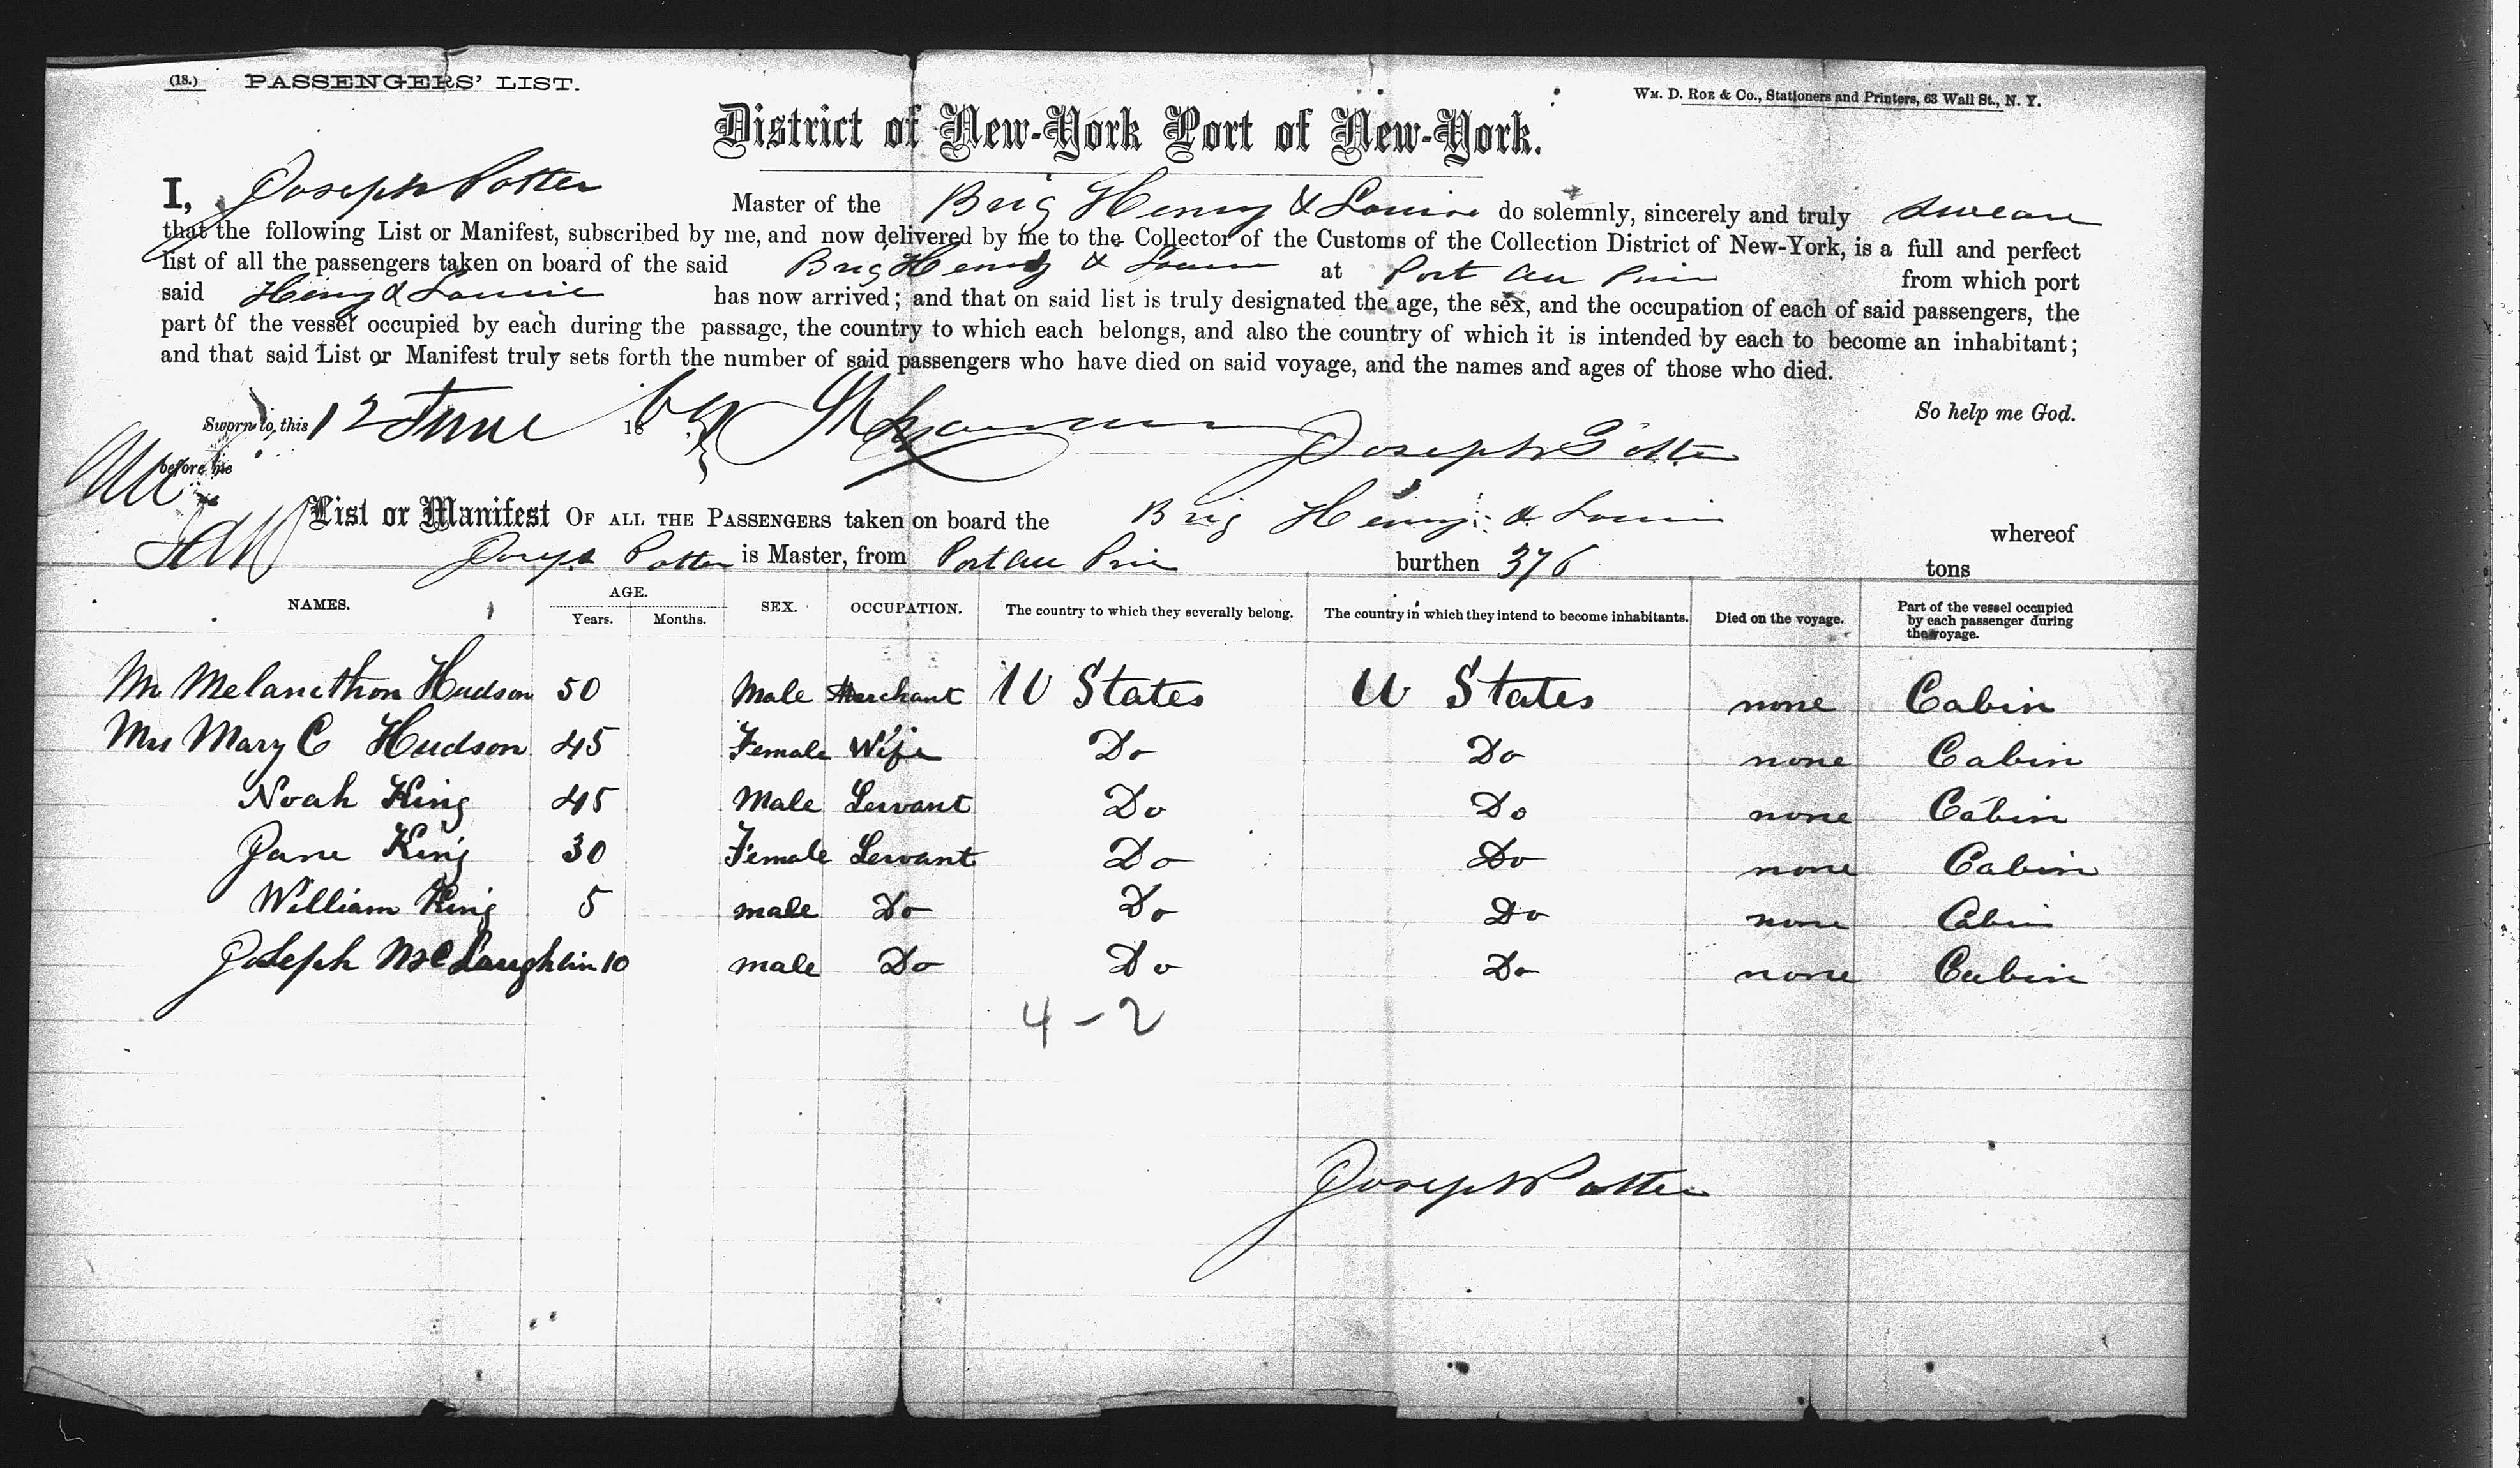 (18.) PASSENGERS' LIST.
WM. D. ROE & CO., Stationers and Printers, 63 Wall St., N. Y.
District of New-York Port of New-York.
I, Joseph Potter Master of the Brig Henry & Louisa do solemnly, sincerely and truly swear
that the following List or Manifest, subscribed by me, and now delivered by me to the Collector of the Customs of the Collection District of New-York, is a full and perfect
list of all the passengers taken on board of the said Brig Henry & Louisa at Port au Prin from which port
said Henry & Louisa has now arrived; and that on said list is truly designated the age, the sex, and the occupation of each of said passengers, the
part of the vessel occupied by each during the passage, the country to which each belongs, and also the country of which it is intended by each to become an inhabitant;
and that said List or Manifest truly sets forth the number of said passengers who have died on said voyage, and the names and ages of those who died.
So help me God.
Sworn to, this 12 June 18 Joseph Potter
before me
List or Manifest OF ALL THE PASSENGERS taken on board the Brig Henry & Louisa whereof
Joseph Potter is Master, from Port au Prin burthen 376 tons
NAMES. AGE. Years. Months. SEX. OCCUPATION. The country to which they severally belong. The country in which they intend to become inhabitants. Died on the voyage. Part of the vessel occupied by each passenger during the voyage.
Mr Melancthon Hudson 50 Male Merchant U States U States none Cabin
Mrs Mary C Hudson 45 Female Wife Do Do none Cabin
Noah King 45 Male Servant Do Do none Cabin
Jane King 30 Female Servant Do Do none Cabin
William King 5 male Do Do Do none Cabin
Joseph McLaughlin 10 male Do Do Do none Cabin
4 - 2
Joseph Potter